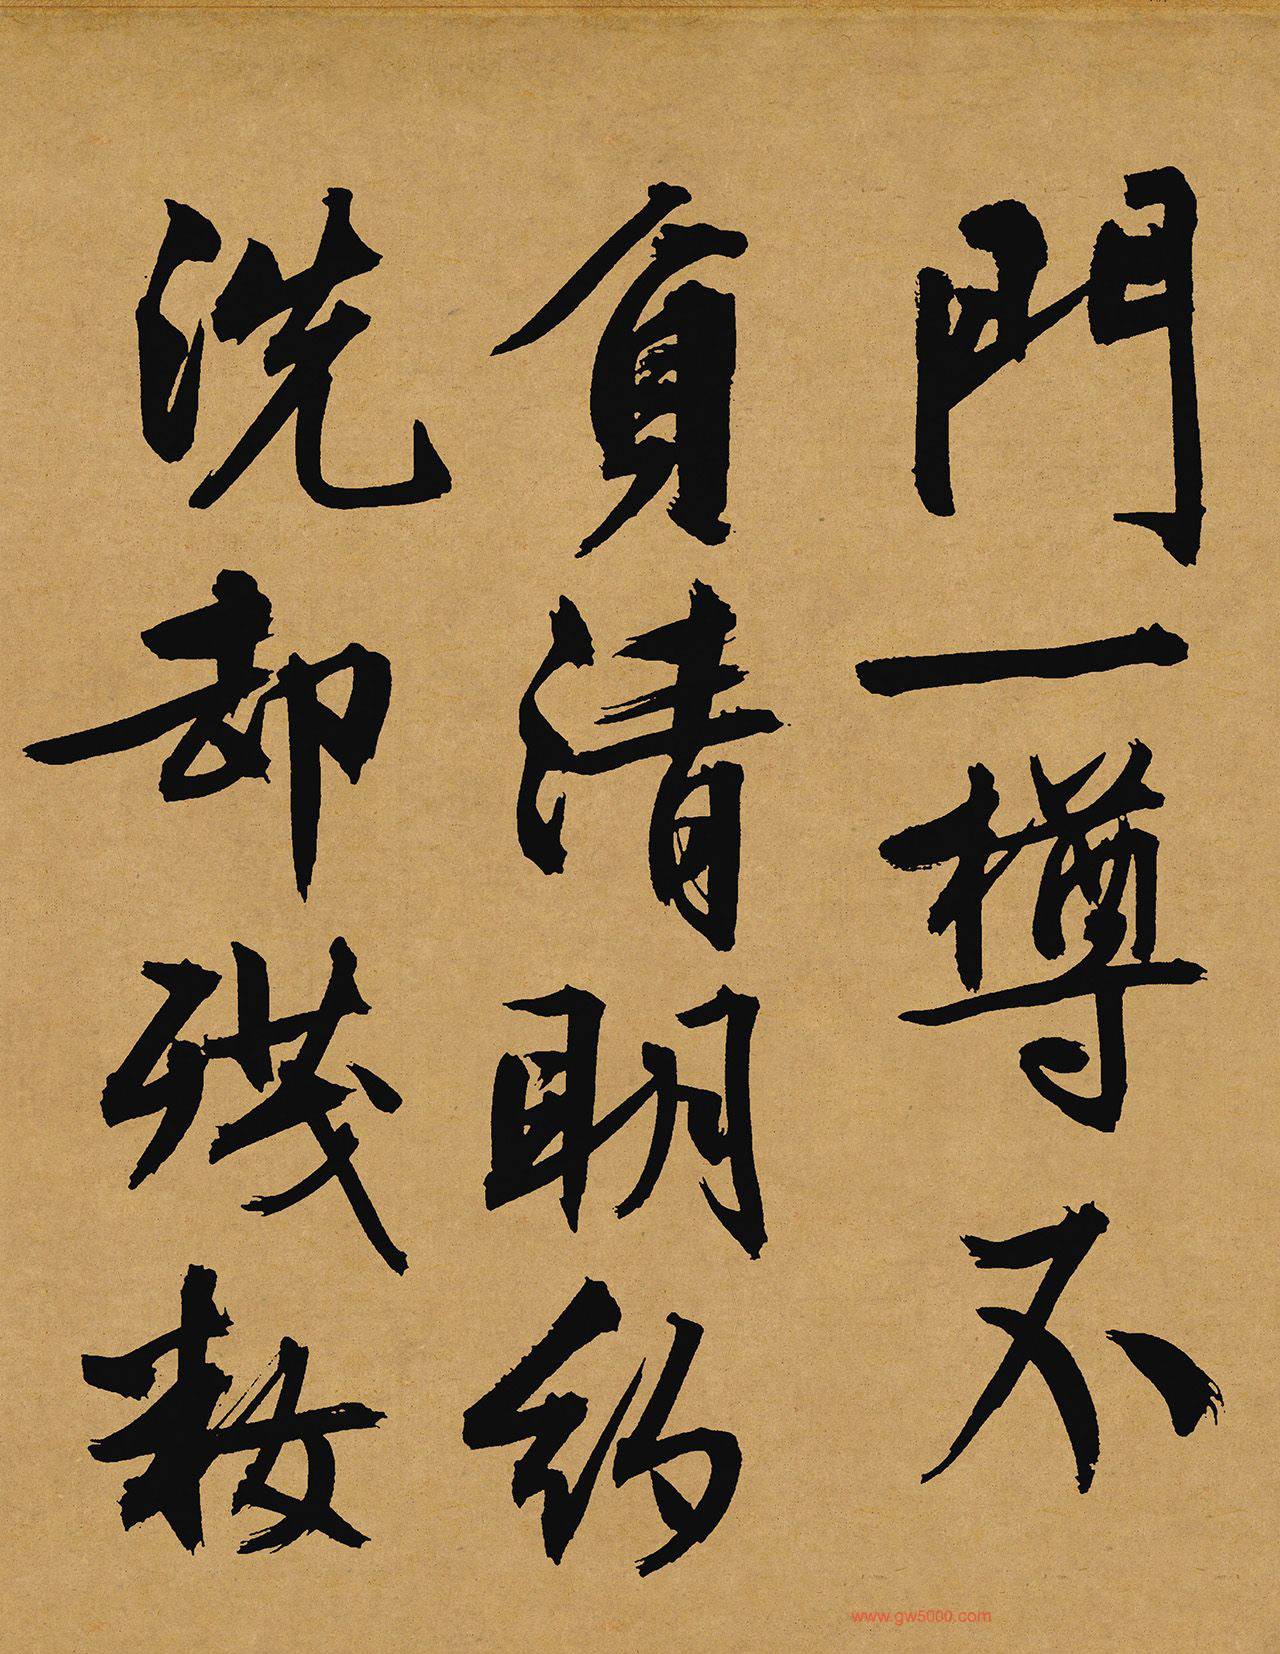 門一樽不
負清明約
洗却残粧
www.gw5000.com